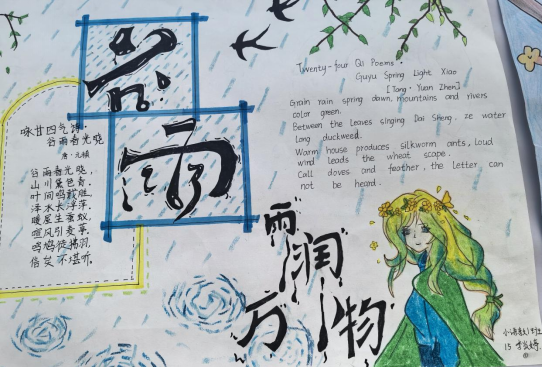 谷
雨
咏廿四气诗
谷雨春光晓
唐·元稹
谷雨春光晓,
山川黛色青。
叶间鸣戴胜,
泽水长浮萍。
暖屋生蚕蚁,
喧风引麦葶。
鸣鸠徒拂羽,
信矣不堪听。
Twenty-four Qi Poems ·
Guyu Spring Light Xiao
[Tang · Yuan Zhen]
Grain rain spring dawn, mountains and rivers
color green.
Between the leaves singing Dai Sheng, ze water
Long duckweed.
Warm house produces silkworm ants, loud
wind leads the wheat scape.
Call doves and feather, the letter can
not be heard.
雨润
万物
15